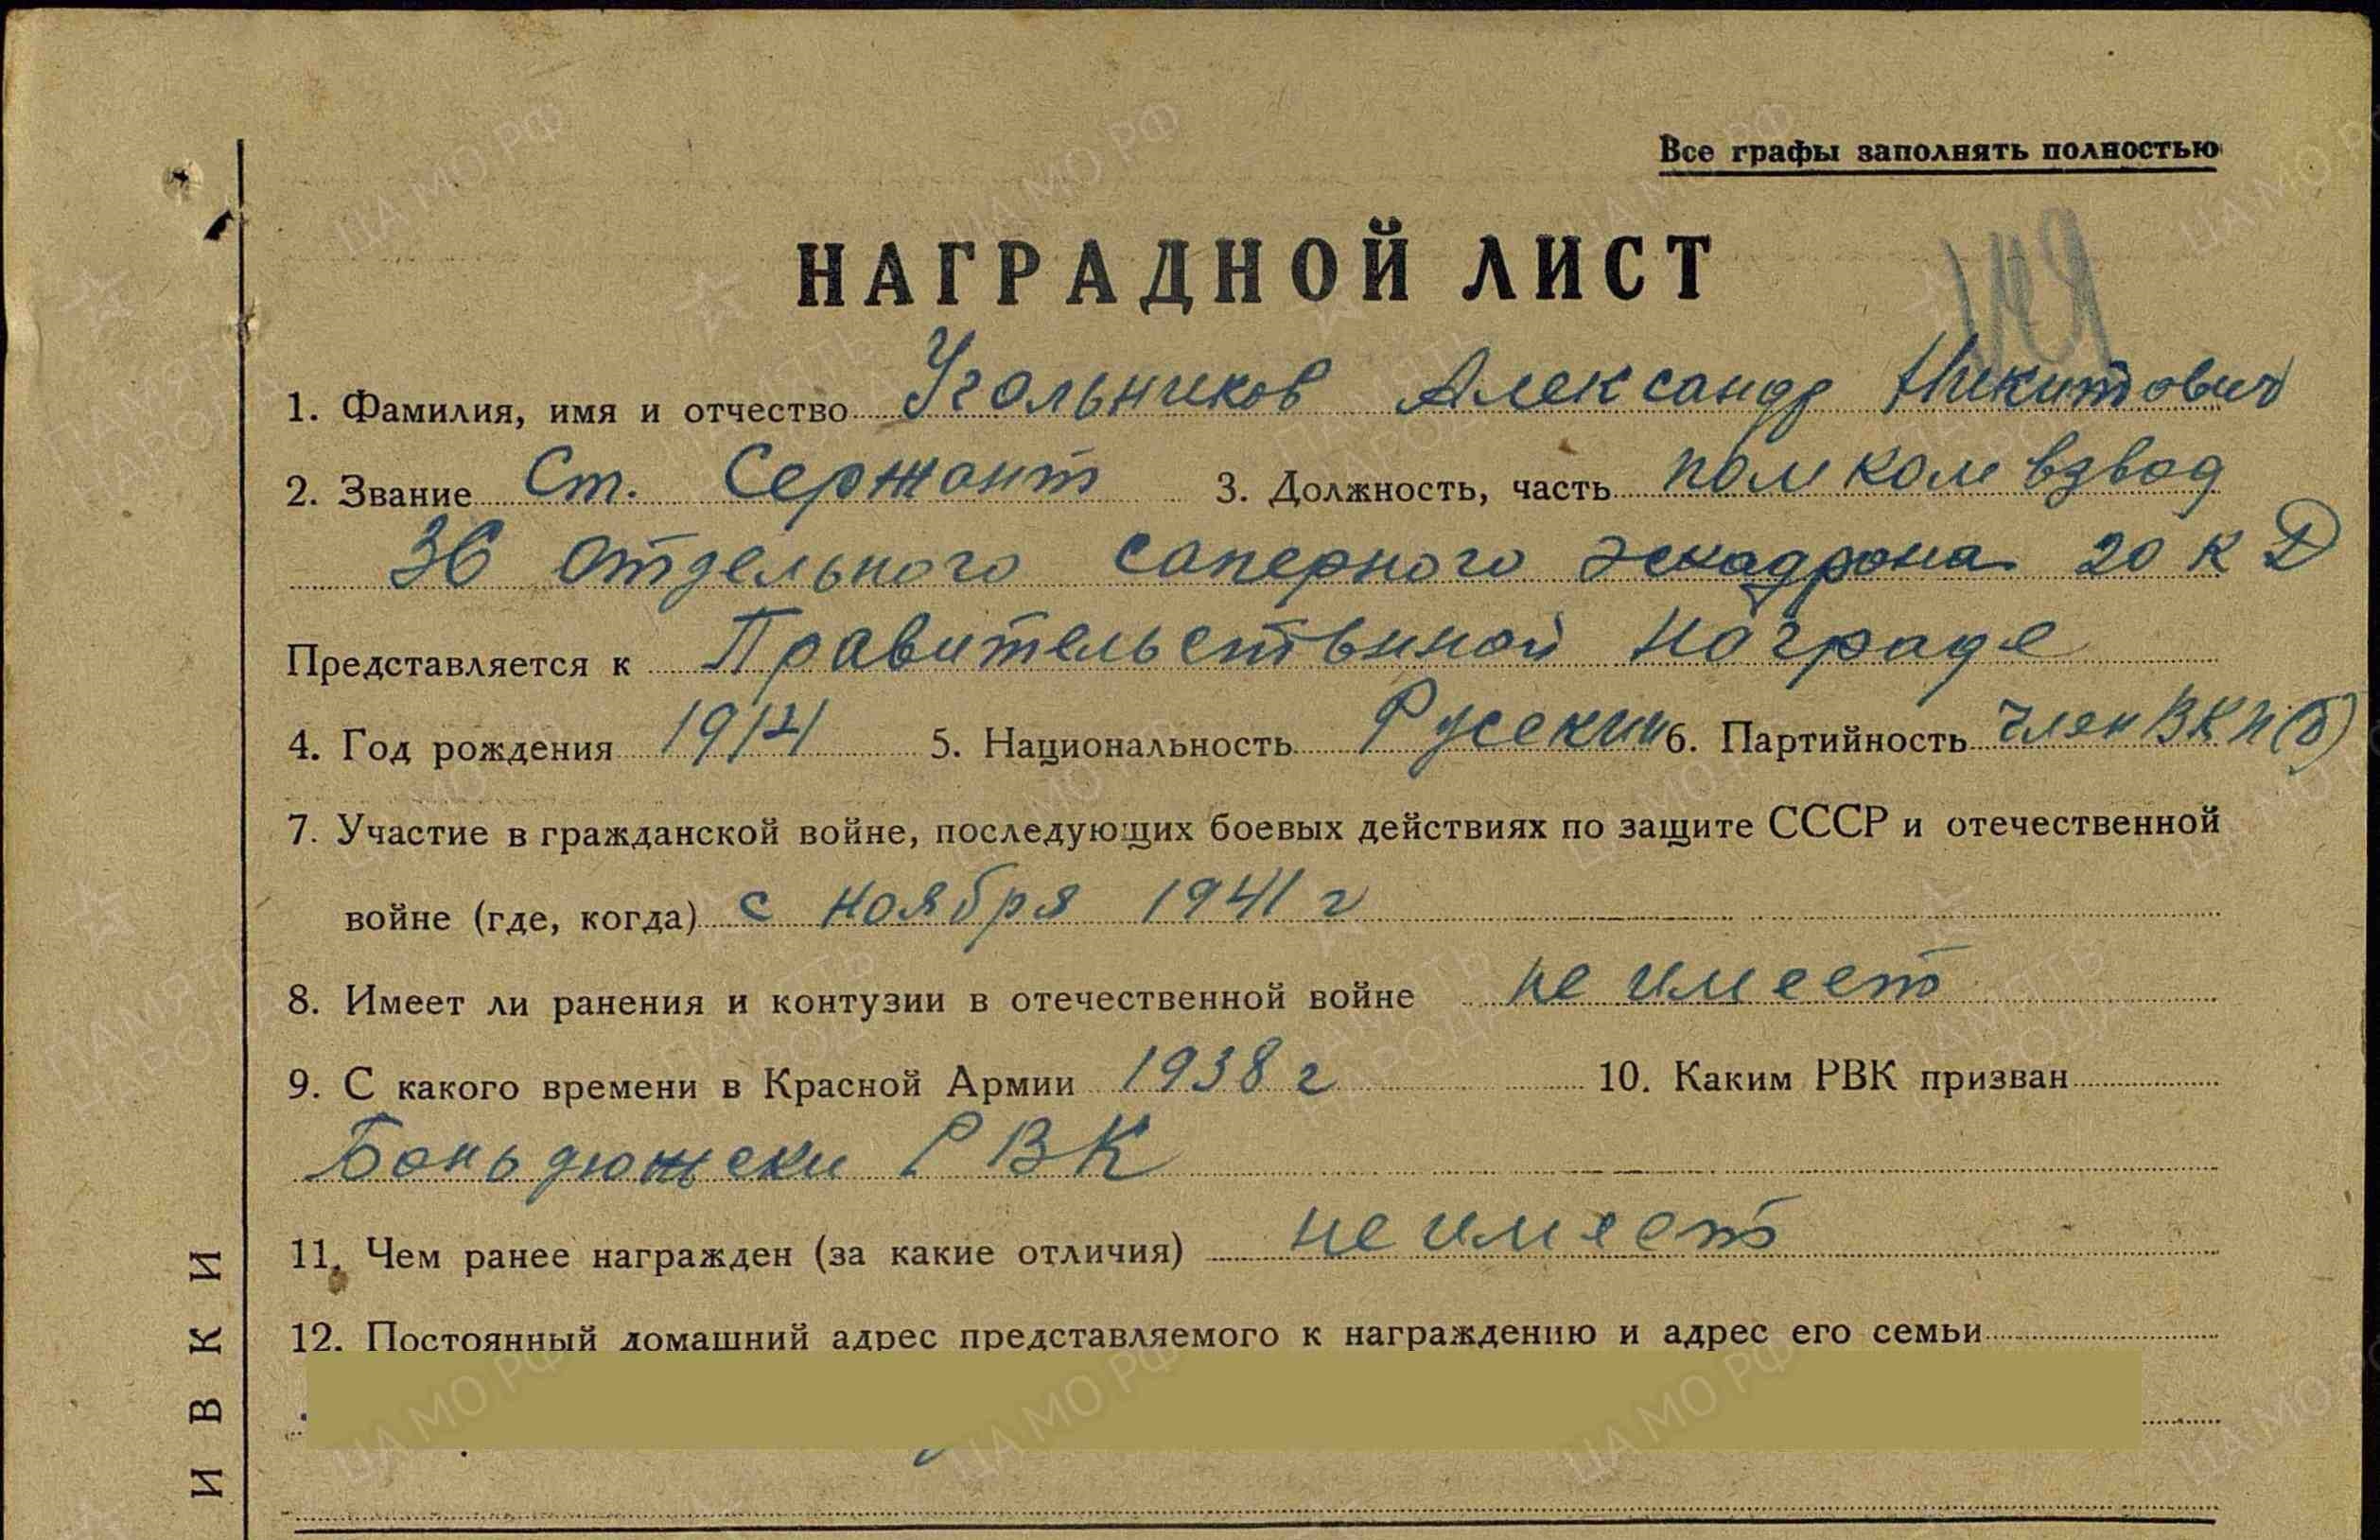 Все графы заполнять полностью
НАГРАДНОЙ ЛИСТ
1. Фамилия, имя и отчество Угольников Александр Никитович
2. Звание Ст. Сержант 3. Должность, часть пом ком взвод
36 отдельного саперного эскадрона 20 К Д
Представляется к Правительственной награде
4. Год рождения 1914 5. Национальность Русский 6. Партийность член ВКП(б)
7. Участие в гражданской войне, последующих боевых действиях по защите СССР и отечественной
войне (где, когда) с ноября 1941 г
8. Имеет ли ранения и контузии в отечественной войне не имеет
9. С какого времени в Красной Армии 1938 г 10. Каким РВК призван
Боньдюжски РВК
11. Чем ранее награжден (за какие отличия) не имеет
12. Постоянный домашний адрес представляемого к награждению и адрес его семьи
ИВКИ
ЦА МО РФ
ПАМЯТЬ НАРОДА